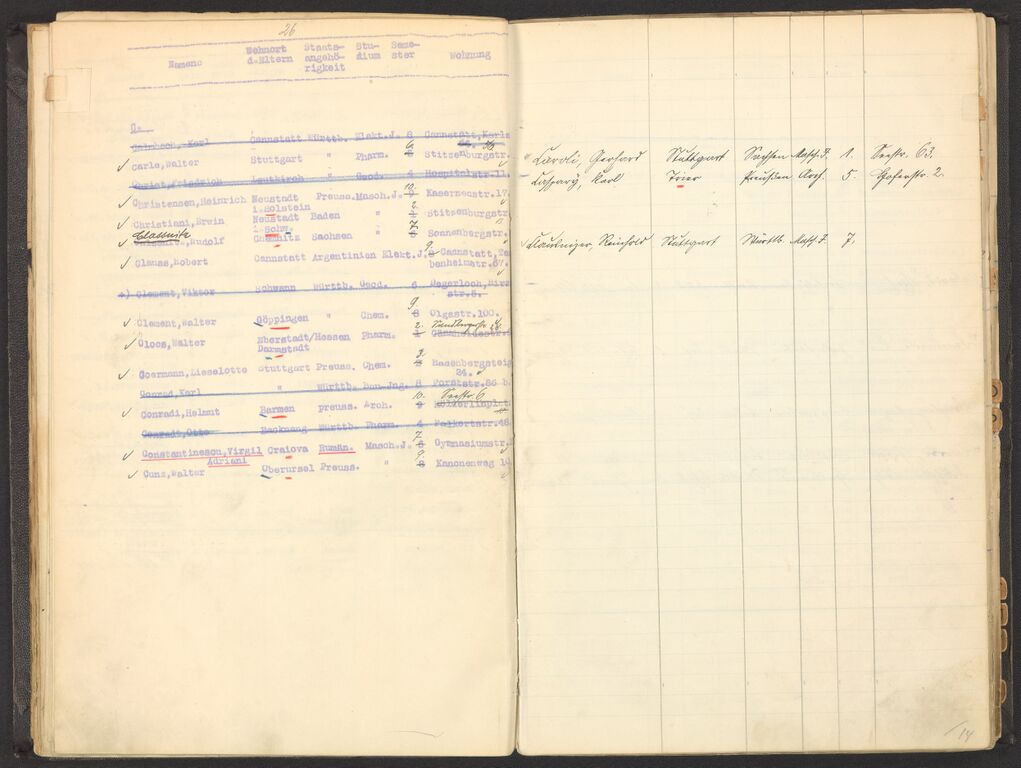 26
Namenc Wohnort d.Eltern Staats- angehö- rigkeit Stu- dium Seme- ster Wohnung
C.
Cannstatt Württb. Elekt.J. 8 Cannstatt, Karls
✓ Carle, Walter Stuttgart " Pharm. 6. Stitzenburgstr.
Christ, Friedrich Leutkirch " Geod. 4 Hospitalstr.11.
✓ Christensen, Heinrich Neustadt Preuss. Masch.J. 10. Kasernenstr.17
i.Holstein
✓ Christiani, Erwin Neustadt Baden " 2. Stitzenburgstr
i.Schw.
✓ Classnitz Rudolf Chemnitz Sachsen " 7. Sonnenbergstr.
✓ Clauss, Robert Cannstatt Argentinien Elekt.J. 9. 8 Cannstatt,
benheimstr.67.
+) Clement, Viktor Schwann Württb. Geod. 6 Degerloch,
str.8.
✓ Clement, Walter Göppingen " Chem. 9. 8 Olgastr.100.
✓ Cloos, Walter Eberstadt/Hessen Pharm. 2. 1
Darmstadt
✓ Coermann, Lieselotte Stuttgart Preuss. Chem. 3. Hasenbergsteig
24.
Conrad, Karl " Württb. Bau-Jng. 8 Forststr.86 b.
✓ Conradi, Helmut Barmen preuss. Arch. 10. 9 Seestr. 6 Hölderlinplatz
Conradt, Otto Backnang Württb. Pharm. 4 Falkertstr.48
✓ Constantinescu, Virgil Craiova Rumän. Masch.J. 7. 6 Gymnasiumstr.
Adriani
✓ Cunz, Walter Oberursel Preuss. " 9. 8 Kanonenweg 10
Caroli, Gerhard Stuttgart Sachsen Masch.J. 1. Seestr. 63.
Caspary, Karl Trier Preußen Arch. 5. Hohenstr. 2.
Clausniger Reinhold Stuttgart Württb. Masch.J. 7
14